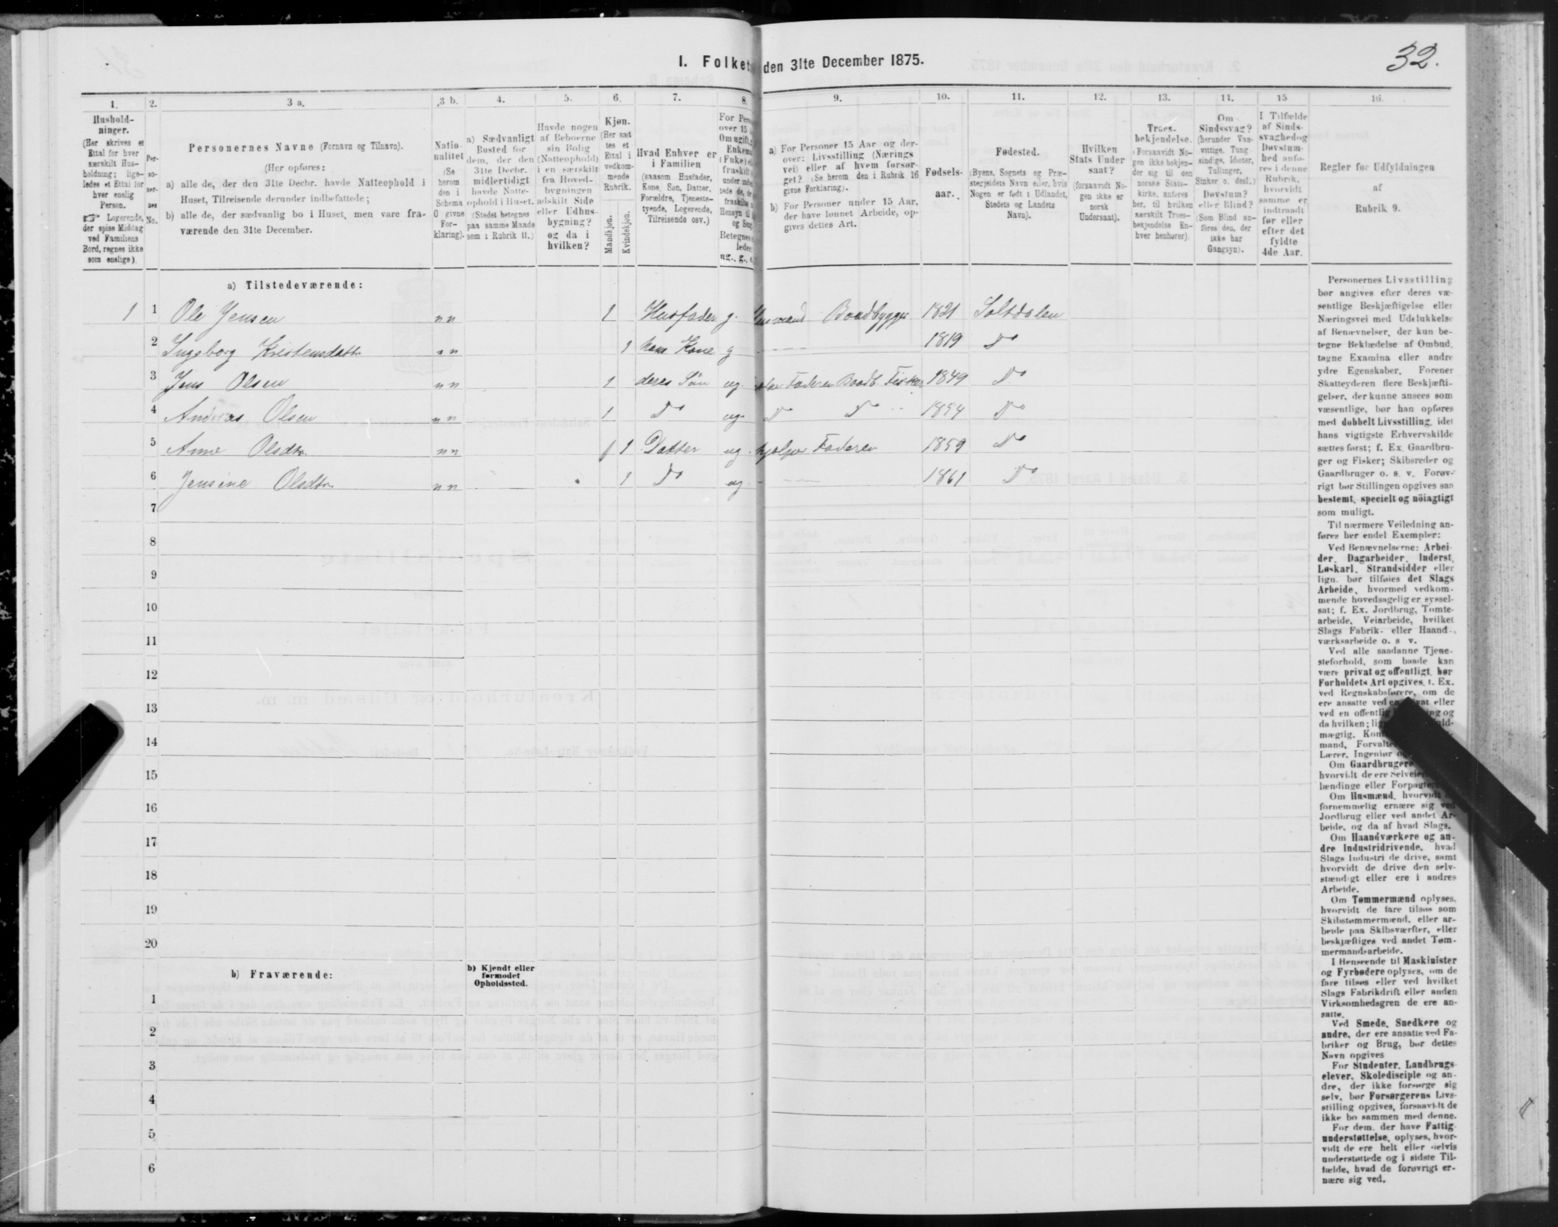 32.
I. Folket den 31te December 1875.
1. 2. 3 a. 3 b. 4. 5. 6. 7. 8. 9. 10. 11. 12. 13. 14. 15 16.
Hushold-
ninger.
(Her skrives et
Ettal for hver
særskilt Hus-
holdning; lige-
ledes et Ettal for
hver enslig
Person.
Logerende,
der spise Middag
ved Familiens
Bord, regnes ikke
som enslige).
Per-
so-
ner-
nes
No.
Personernes Navne (Fornavn og Tilnavn).
(Her opføres:
a) alle de, der den 31te Decbr. havde Natteophold i
Huset, Tilreisende derunder indbefattede;
b) alle de, der sædvanlig bo i Huset, men vare fra-
værende den 31te December.
Natio-
nalitet
(Se
herom
den i
Schema
O givne
For-
klaring).
a) Sædvanligt
Bosted for
dem, der den
31te Decbr.
midlertidigt
havde Natte-
ophold i Huset.
(Stedet betegnes
paa samme Maade
som i Rubrik 11.)
Havde nogen
af Beboerne
sin Bolig
(Natteophold)
i en særskilt
fra Hoved-
bygningen
adskilt Side
eller Udhus-
bygning?
og da i
hvilken?
Kjøn.
(Her sæt
tes et
Ettal i
vedkom-
mende
Rubrik.
Mandkjøn.
Kvindekjøn.
Hvad Enhver er
i Familien
(saasom Husfader,
Kone, Søn, Datter,
Forældre, Tjeneste-
tyende, Logerende,
Tilreisende osv.)
For Pers
over 15
Om ugift,
Enkem
(Fuke) e
fraskilt
a) For Personer 15 Aar og der-
over: Livsstilling (Nærings
vei) eller af hvem forsør-
get? (Se herom den i Rubrik 16
givne Forklaring).
b) For Personer under 15 Aar,
der have lønnet Arbeide, op-
gives dettes Art.
Fødsels-
aar.
Fødested.
(Byens, Sognets og Præ-
stegjeldets Navn eller, hvis
Nogen er født i Udlandet,
Stedets og Landets
Navn).
Hvilken
Stats Under
saat?
(forsaavidt No-
gen ikke er
norsk
Undersaat).
Troes-
bekjendelse.
(Forsaavidt No-
gen ikke bekjen-
der sig til den
norske Stats-
kirke, anføres
her, til hvilken
særskilt Troes-
bekjendelse En-
hver henhører).
Om
Sindssvag?
(herunder Van-
vittige, Tung
sindige, Idioter,
Tullinger,
Sinker o. desl.)
eller Blind?
Døvstum?
(Som Blind an-
føres den, der
ikke har
Gangsyn).
I Tilfælde
af Sinds-
svaghed og
Døvstum-
hed anfø-
res i denne
Rubrik,
hvorvidt
samme er
indtraadt
før eller
efter det
fyldte
4de Aar.
Regler for Udfyldningen
af
Rubrik 9.
a) Tilstedeværende:
1 1 Ole Jensen nn 1 Husfader g. Husmand Baadbygger 1821 Saltdalen
2 Ingeborg Kristensdattr nn 1 hans Kone g 1819 Do
3 Jens Olsen nn 1 deres Søn ug Faderen Baadb. Fisker 1849 Do
4 Andreas Olsen nn 1 Do ug Do Do 1854 Do
5 Anne Olsdtr nn 1 Datter ug hjælper Faderen 1859 Do
6 Jensine Olsdtr nn 1 Do ug 1861 Do
7
8
9
10
11
12
13
14
15
16
17
18
19
20
b) Fraværende:
b) Kjendt eller
formodet
Opholdssted.
1
2
3
4
5
6
Personernes Livsstilling
bør angives efter deres væ-
sentlige Beskjæftigelse eller
Næringsvei med Udelukkelse
af Benævnelser, der kun be-
tegne Beklædelse af Ombud,
tagne Examina eller andre
ydre Egenskaber. Forener
Skatteyderen flere Beskjæfti-
gelser, der kunne ansees som
væsentlige, bør han opføres
med dobbelt Livsstilling, idet
hans vigtigste Erhvervskilde
sættes først; f. Ex. Gaardbru-
ger og Fisker; Skibsreder og
Gaardbruger o. s. v. Forøv-
rigt bør Stillingen opgives saa
bestemt, specielt og nöiagtigt
som muligt.
Til nærmere Veiledning an-
føres her endel Exempler:
Ved Benævnelserne: Arbei-
der, Dagarbeider, Inderst,
Løskarl, Strandsidder eller
lign. bør tilføies det Slags
Arbeide, hvormed vedkom-
mende hovedsagelig er syssel-
sat; f. Ex. Jordbrug, Tomte-
arbeide, Veiarbeide, hvilket
Slags Fabrik- eller Haand-
værksarbeide o. s v.
Ved alle saadanne Tjene-
steforhold, som baade kan
være privat og offentligt, bør
Forholdets Art opgives, t. Ex.
ved Regnskabsførere, om de
ere ansatte ved eller
ved en offentlig og
da hvilken;
mægtig,
mand,
Lærer, Ingeniør
Om Gaardbrugere
hvorvidt de ere Selveiere
lændinge eller Forpagtere
Om Husmænd, hvorvidt
fornemmelig ernære sig ved
Jordbrug eller ved andet Ar-
beide, og da af hvad Slags.
Om Haandværkere og an-
dre Industridrivende, hvad
Slags Industri de drive, samt
hvorvidt de drive den selv-
stændigt eller ere i andres
Arbeide.
Om Tømmermænd oplyses,
hvorvidt de fare tilsøs som
Skibstømmermænd, eller ar-
beide paa Skibsværfter, eller
beskjæftiges ved andet Tøm-
mermandsarbeide.
I Henseende til Maskinister
og Fyrbødere oplyses, om de
fare tilsøs eller ved hvilket
Slags Fabrikdrift eller anden
Virksomhedsgren de ere an-
satte.
Ved Smede, Snedkere og
andre, der ere ansatte ved Fa-
briker og Brug, bør dettes
Navn opgives
For Studenter, Landbrugs-
elever, Skoledisciple og an-
dre, der ikke forsørge sig
selv, bør Forsørgerens Livs-
stilling opgives, forsaavidt de
ikke bo sammen med denne.
For dem, der have Fattig-
understøttelse, oplyses, hvor-
vidt de ere helt eller delvis
understøttede og i sidste Til-
fælde, hvad de forøvrigt er-
nære sig ved.